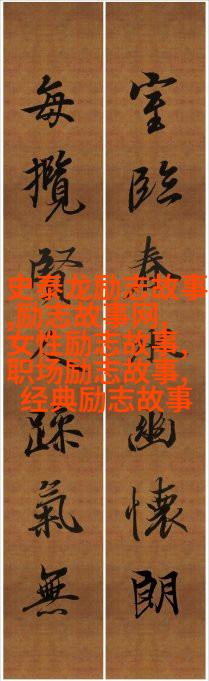 室臨春幽懷朗
每攬賢踈氣無
史泰龙励志故事
,励志故事网,
女性励志故事,
职场励志故事,
经典励志故事